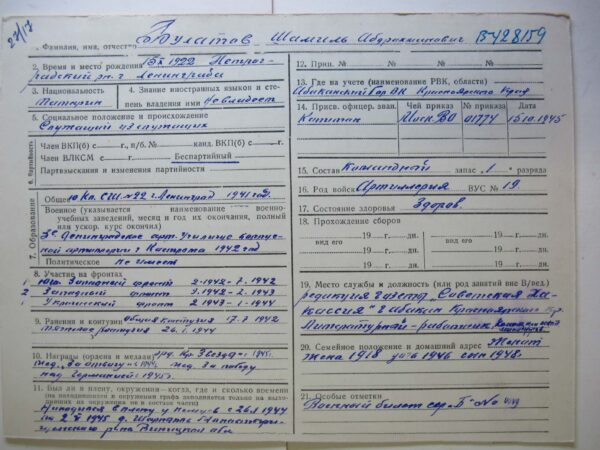 27/17
1. Фамилия, имя, отчество Булатов Шамгель Абдрахманович
2. Время и место рождения 1922 Петрог-
радский р-н г. Ленинграда
3. Национальность
Татарин
4. Знание иностранных языков и сте-
пень владения ими Не владеет
5. Социальное положение и происхождение
Служащий из служащих
6. Партийность
Член ВКП(б) с г., п/б. № канд. ВКП(б) с г.
Член ВЛКСМ с Беспартийный
Партвзыскания и изменения партийности
7. Образование
Общее 10 кл. СШ №22 г. Ленинград 1941 год.
Военное (указывается наименование военно-
учебных заведений, месяц и год их окончания, полный
или ускор. курс окончил)
3е Ленинградское арт. училище
артиллерии г. Кострома 1942 год
Политическое не имеет
8. Участие на фронтах
1 Юго. Западный фронт 2-1942-7.1942
2 Западный фронт 1942-2.1943
1 Украинский фронт 2.1943-1.1944
9. Ранения и контузии общая контузия 17.7.1942
тяжелое контузия 26.1.1944
10. Награды (ордена и медали) Кр. Звезда 1945г.
мед. За отвагу мед. За победу
над Германией 1945г.
11. Был ли в плену, окружении—когда, где и сколько времени
(на находившихся в окружении графа заполняется только на вы-
шедших из окружения не в составе части)
Находился в плену у немцев с 26.1.1944
по 1945 д.
р-на Виницкой обл
В428159
12. Прин. № №
13. Где на учете (наименование РВК, области)
Абаканский Гор ВК Красноярского Края
14. Присв. офицер. зван. Чей приказ № приказа Дата
Капитан Моск ВО 01774 15.10.1945
15. Состав Командной запас 1 разряда
16. Род войск Артиллерия ВУС № 19.
17. Состояние здоровья Здоров.
18. Прохождение сборов
19 г. дн. 19 г. дн.
вид его вид его
19 г. дн. 19 г. дн.
19 г. дн. 19 г. дн.
19. Место службы и должность (или род занятий вне В/вед.)
редакция газеты „Советская Ха-
кассия" г. Абакан Красноярского кр.
Литературный работник
20. Семейное положение и домашний адрес Женат
жена 1918 1946 сын 1948.
21. Особые отметки
Военный билет сер. „Б" №